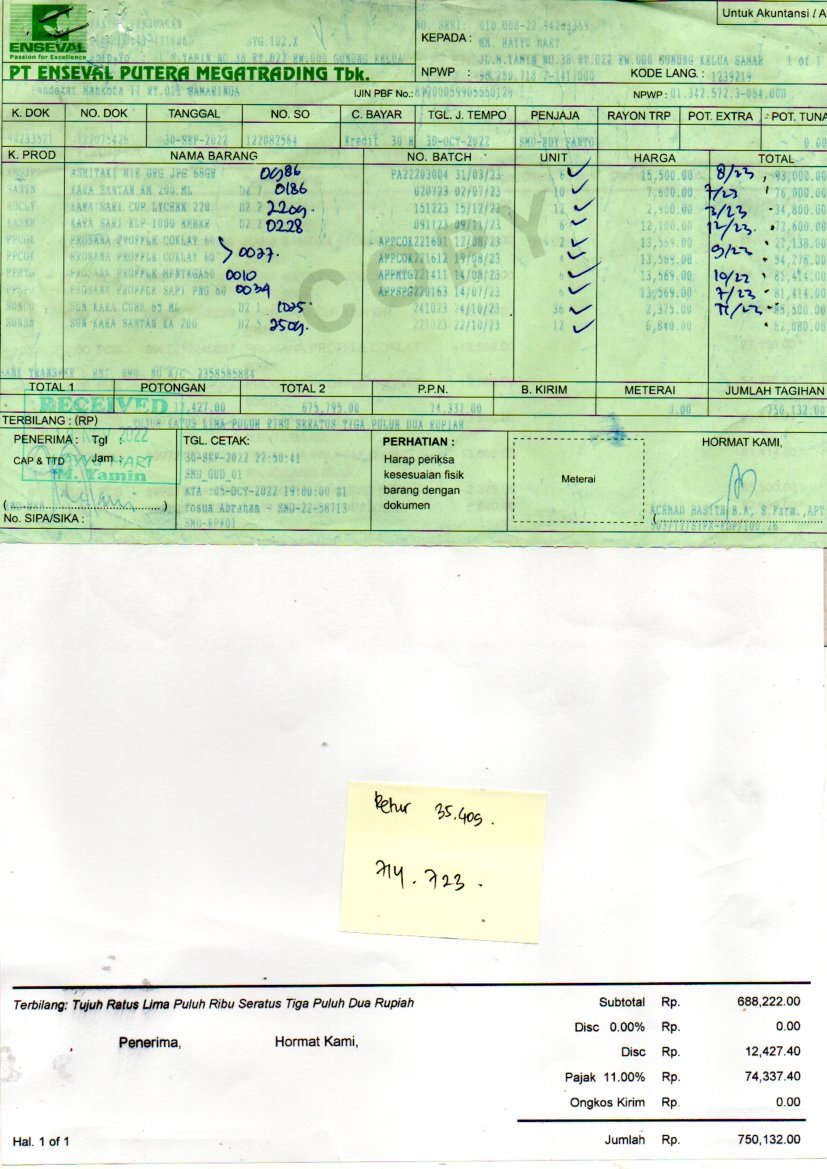 Untuk Akuntansi / A
FAKTUR PENJUALAN
NO. SERI: 010.008-22.94203369
KEPADA :
MN. HAYYU MART
ENSEVAL
Passion for Excellence
JL.M.YAMIN NO.38 RT.022 RW.000 GUNUNG KELUA SAMAR 1 of 1
PT ENSEVAL PUTERA MEGATRADING Tbk.
NPWP :
KODE LANG. : 1239219
RT.011 SAMARINDA
IJIN PBF No.: 81200059905550129
NPWP : 01.342.572.3-054.000
K. DOK NO. DOK TANGGAL NO. SO C. BAYAR TGL. J. TEMPO PENJAJA RAYON TRP POT. EXTRA POT. TUNA
122075426 30-SEP-2022 122082564 Kredit 30 H 30-OCT-2022 SMD-EDY SANTO 0.00
K. PROD NAMA BARANG NO. BATCH UNIT HARGA TOTAL
ASHITAKI MIE GPG JPG 68GR 0986 PA22203004 31/03/23 6 15,500.00 8/23 93,000.00
KARA SANTAN KM 200 ML 0186 020723 02/07/23 10 7,600.00 7/23 76,000.00
KARA SARI CUP LYCHEE 220 2209. 151223 15/12/23 12 2,900.00 34,800.00
KARA SARI KLP 1000 0228 091123 09/11/23 6 12,100.00 12/23. 72,600.00
PROSANA PROFFLE COKLAT 60 APPCOK221601 12/08/23 2 13,569.00 27,138.00
PROSANA PROFFLE COKLAT 60 0027. APPCOK221612 19/08/23 4 13,569.00 9/23 54,276.00
PROSANA PROFFLE MENTEGA60 0010 APPMTG221411 14/08/23 6 13,569.00 10/22 81,414.00
PROSANA PROFFLE SAPI PNG 60 0034 APPSPG220163 14/07/23 6 13,569.00 7/23 81,414.00
SUN KARA CUBE 65 ML 1025 241023 24/10/23 36 2,375.00 11/23 85,500.00
SUN KARA SANTAN KA 200 2509. 221023 22/10/23 12 6,840.00 82,080.00
BANK TRANSFER : BNI SMD NO A/C 2358585884
TOTAL 1 POTONGAN TOTAL 2 P.P.N. B. KIRIM METERAI JUMLAH TAGIHAN
12,427.00 675,795.00 74,337.00 0.00 750,132.00
RECEIVED
TERBILANG : (RP) TUJUH RATUS LIMA PULUH RIBU SERATUS TIGA PULUH DUA RUPIAH
PENERIMA : Tgl :
2022
CAP & TTD Jam :
MART
M. Yamin
(............)
No. SIPA/SIKA :
TGL. CETAK:
30-SEP-2022 22:50:41
SMD_GUD_01
RTA :05-OCT-2022 19:00:00 Z1
Yosua Abraham - SMD-22-58713
SMD-EPP01
PERHATIAN :
Harap periksa
kesesuaian fisik
barang dengan
dokumen
Meterai
HORMAT KAMI,
ACHMAD BASITH H.A, S.Farm.,APT
COPY
Retur 35.409.
714.723.
Terbilang: Tujuh Ratus Lima Puluh Ribu Seratus Tiga Puluh Dua Rupiah
Penerima, Hormat Kami,
Subtotal Rp. 688,222.00
Disc 0.00% Rp. 0.00
Disc Rp. 12,427.40
Pajak 11.00% Rp. 74,337.40
Ongkos Kirim Rp. 0.00
Jumlah Rp. 750,132.00
Hal. 1 of 1